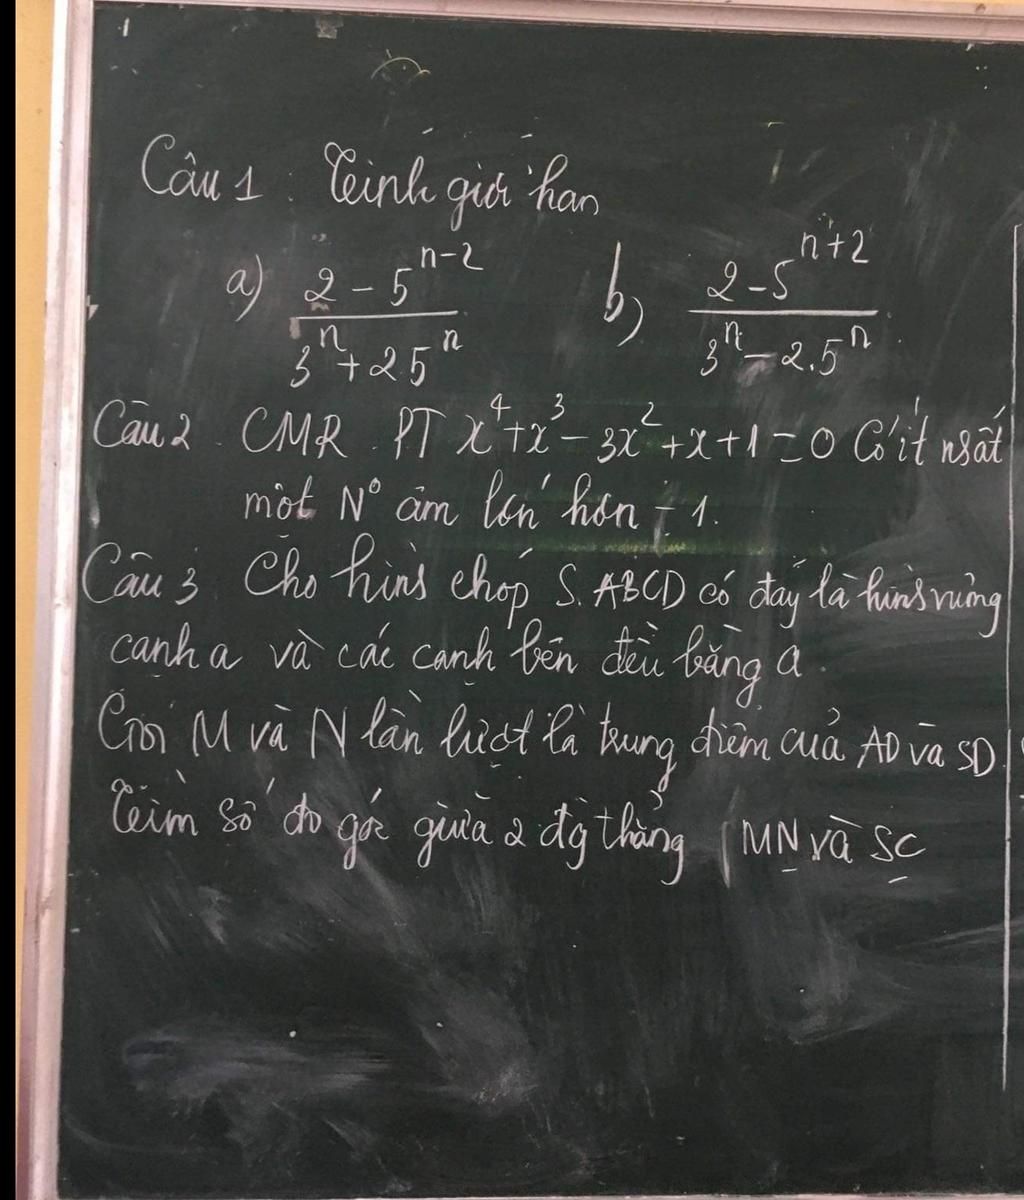 Câu 1: Tính giới hạn
a) (2 - 5^(n-2)) / (3^n + 2 5^n) b) (2 - 5^(n+2)) / (3^n - 2.5^n)
Câu 2. CMR. PT x^4 + x^3 - 3x^2 + x + 1 = 0 Có ít nhất
một N° âm lớn hơn -1.
Câu 3 Cho hình chóp S.ABCD có đáy là hình vuông
cạnh a và các cạnh bên đều bằng a.
Gọi M và N lần lượt là trung điểm của AD và SD.
Tìm số đo góc giữa 2 đg thẳng MN và SC